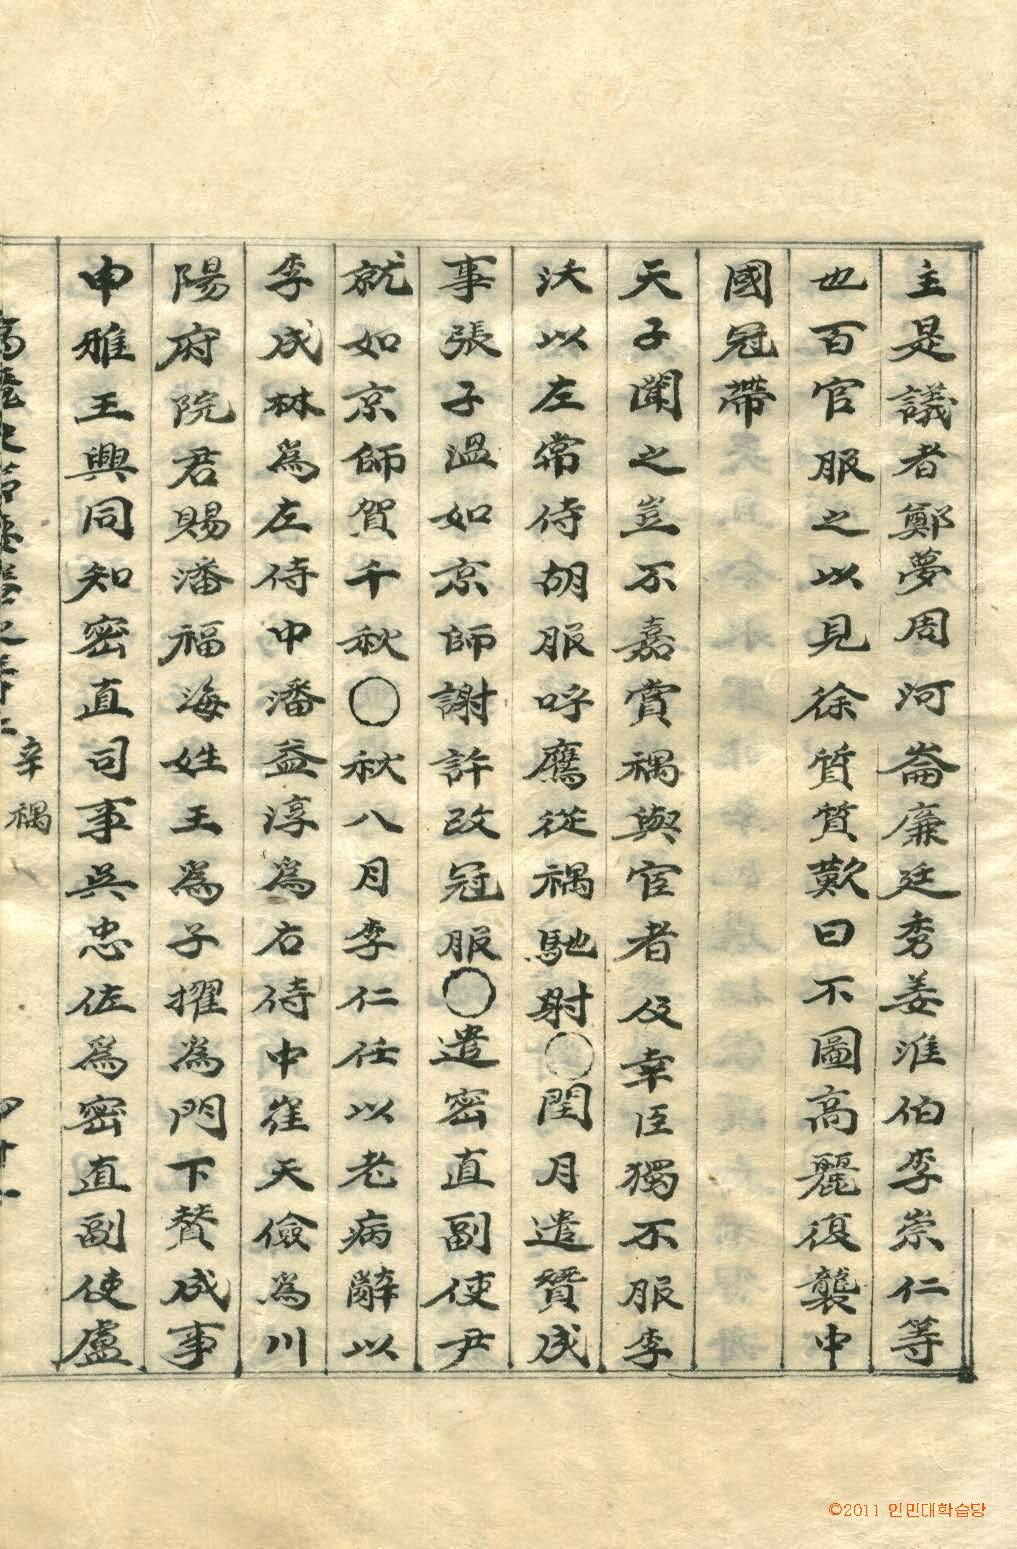 主是議者鄭夢周河崙廉廷秀姜淮伯李崇仁等
也百官服之以見徐質質歎曰不圖高麗復襲中
國冠帶
天子聞之豈不嘉賞禑與宦者及幸臣獨不服李
沃以左常侍胡服呼鷹從禑馳射〇閏月遣贊成
事張子溫如京師謝許改冠服〇遣密直副使尹
就如京師賀千秋〇秋八月李仁任以老病辭以
李成林爲左侍中潘益淳爲右侍中崔天儉爲川
陽府院君賜潘福海姓王爲子擢爲門下贊成事
申雅王興同知密直司事吳忠佐爲密直副使盧
辛禑
©2011 인민대학습당